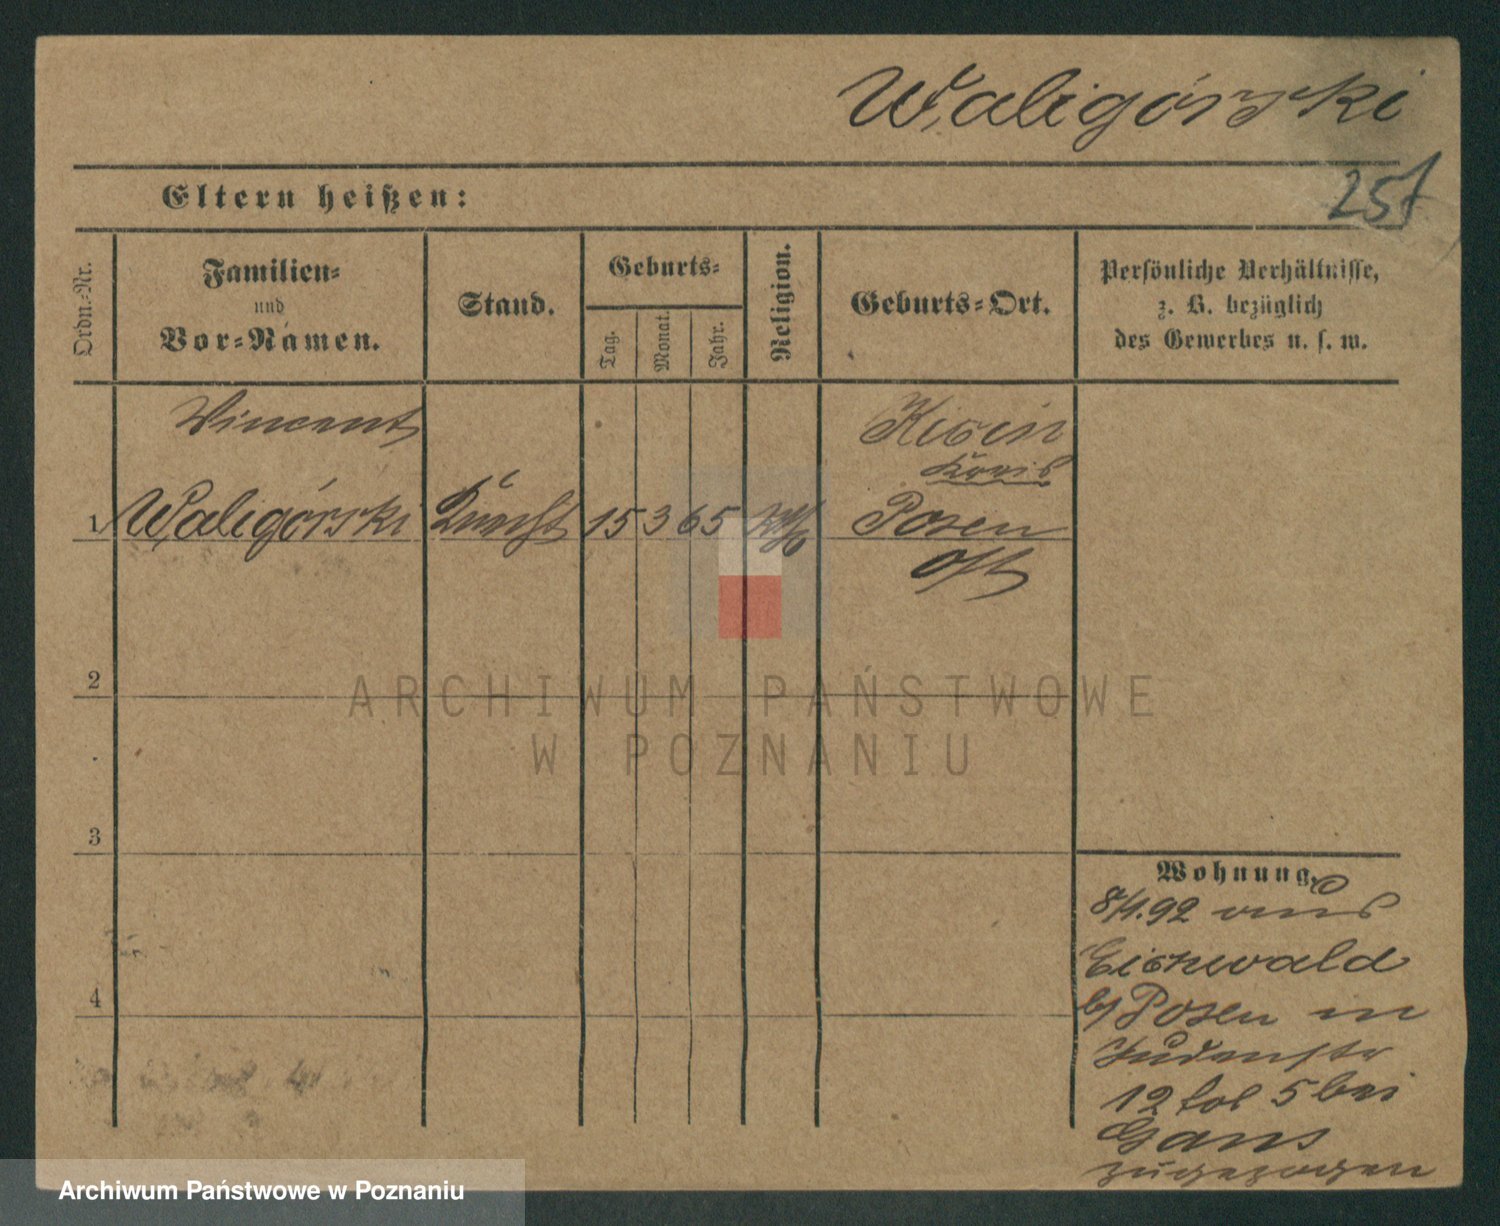 Waligórski
257
Eltern heißen:
Ordn.-Nr.
Familien-
und
Vor-Namen.
Stand.
Geburts-
Tag.
Monat.
Jahr.
Religion.
Geburts-Ort.
Persönliche Verhältnisse,
z. B. bezüglich
des Gewerbes u. s. w.
Vincent
Kicin
Kreis
1 Waligórski Knecht 15 3 65 kth Posen
Ost
2
3
4
Wohnung.
8/1.92 aus
Eichwald
b/ Posen in
Judenstr
12 fol 5 bei
Gans
zugezogen
ARCHIWUM PAŃSTWOWE
W POZNANIU
Archiwum Państwowe w Poznaniu